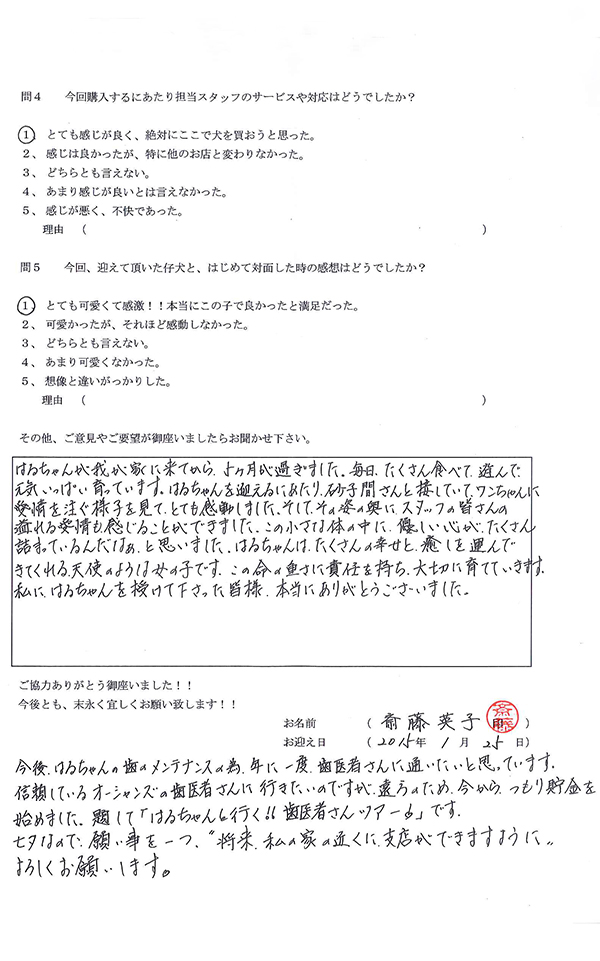 問4　今回購入するにあたり担当スタッフのサービスや対応はどうでしたか？
1、とても感じが良く、絶対にここで犬を買おうと思った。
2、感じは良かったが、特に他のお店と変わりなかった。
3、どちらとも言えない。
4、あまり感じが良いとは言えなかった。
5、感じが悪く、不快であった。
理由　（　　　）
問5　今回、迎えて頂いた仔犬と、はじめて対面した時の感想はどうでしたか？
1、とても可愛くて感激！！本当にこの子で良かったと満足だった。
2、可愛かったが、それほど感動しなかった。
3、どちらとも言えない。
4、あまり可愛くなかった。
5、想像と違いがっかりした。
理由　（　　　）
その他、ご意見やご要望が御座いましたらお聞かせ下さい。
はるちゃんが我が家に来てから、5ヶ月が過ぎました。毎日、たくさん食べて、遊んで
元気いっぱい育っています。はるちゃんを迎えるにあたり、砂子間さんと接していて、ワンちゃんに
愛情を注ぐ様子を見て、とても感動しました。そして、その姿の奥に、スタッフの皆さんの
溢れる愛情も感じることができました。この小さな体の中に、優しい心が、たくさん
詰まっているんだなぁ、と思いました。はるちゃんは、たくさんの幸せと、癒しを運んで
きてくれる、天使のような女の子です。この命の重さに責任を持ち、大切に育てていきます。
私に、はるちゃんを授けて下さった皆様、本当にありがとうございました。
ご協力ありがとう御座いました！！
今後とも、末永く宜しくお願い致します！！
お名前　（ 斎藤 英子 印 ） 斎藤
お迎え日　（ 2015年 1月 25日）
今後、はるちゃんの歯のメンテナンスの為、年に一度、歯医者さんに通いたいと思っています。
信頼しているオーシャンズの歯医者さんに行きたいのですが、遠方のため、今から、つもり貯金を
始めました。題して「はるちゃんと行く!! 歯医者さんツアー」です。
七夕なので、願い事を一つ、〝将来、私の家の近くに、支店ができますように〟
よろしくお願いします。